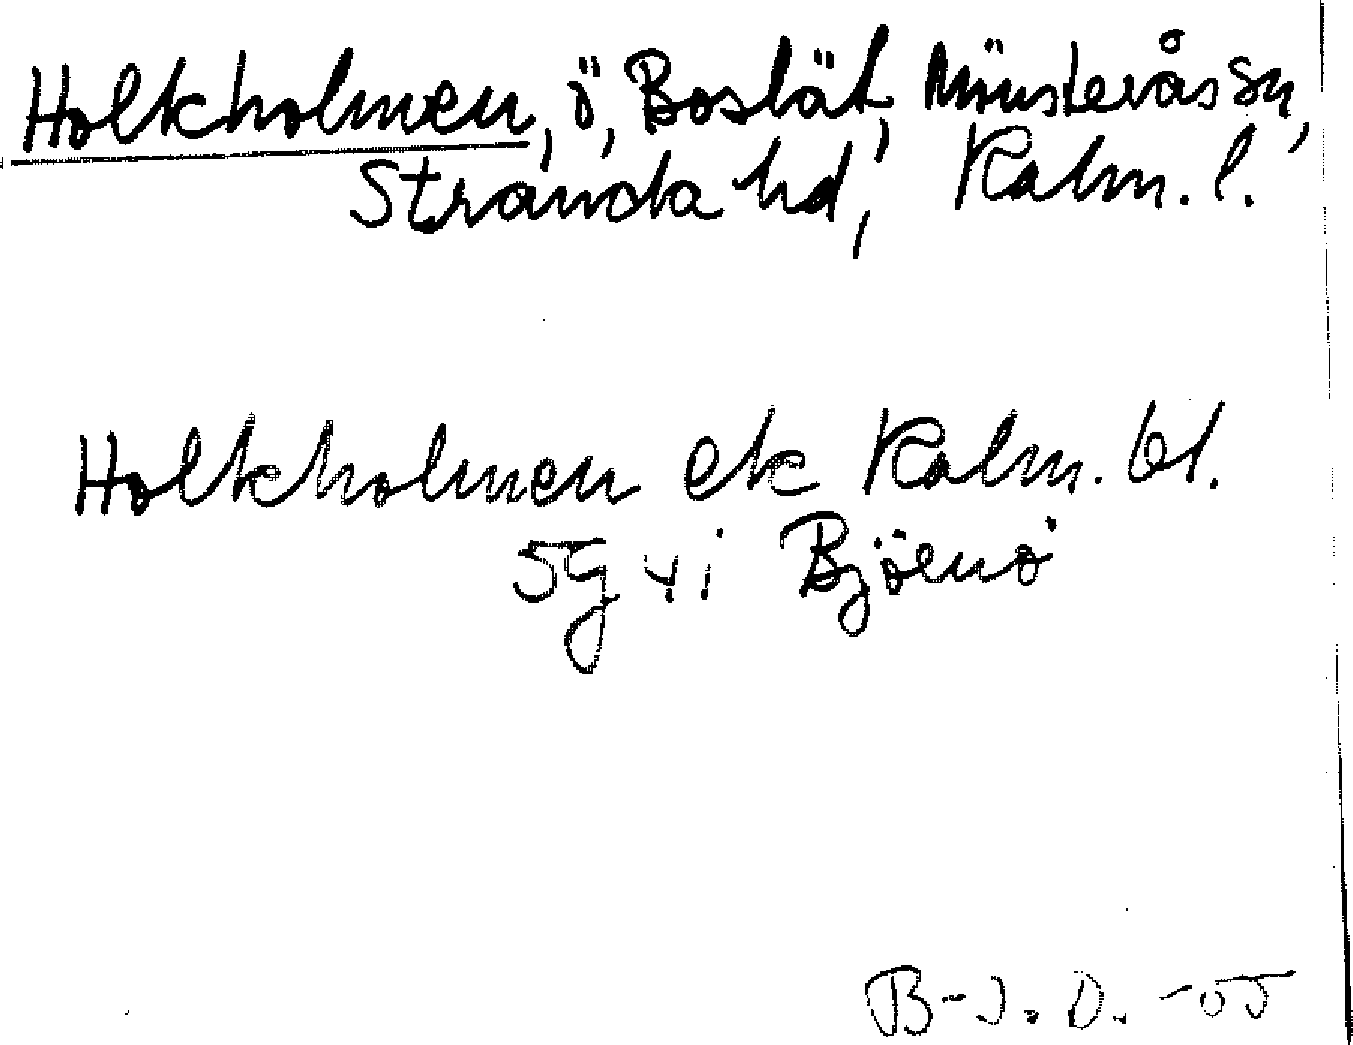 Holkholmen, ö, Boslät, Mönsterås sn,
Stranda hd, Kalm. l.
Holkholmen ek Kalm. bl.
5G vi Björnö
B-J. D. -05